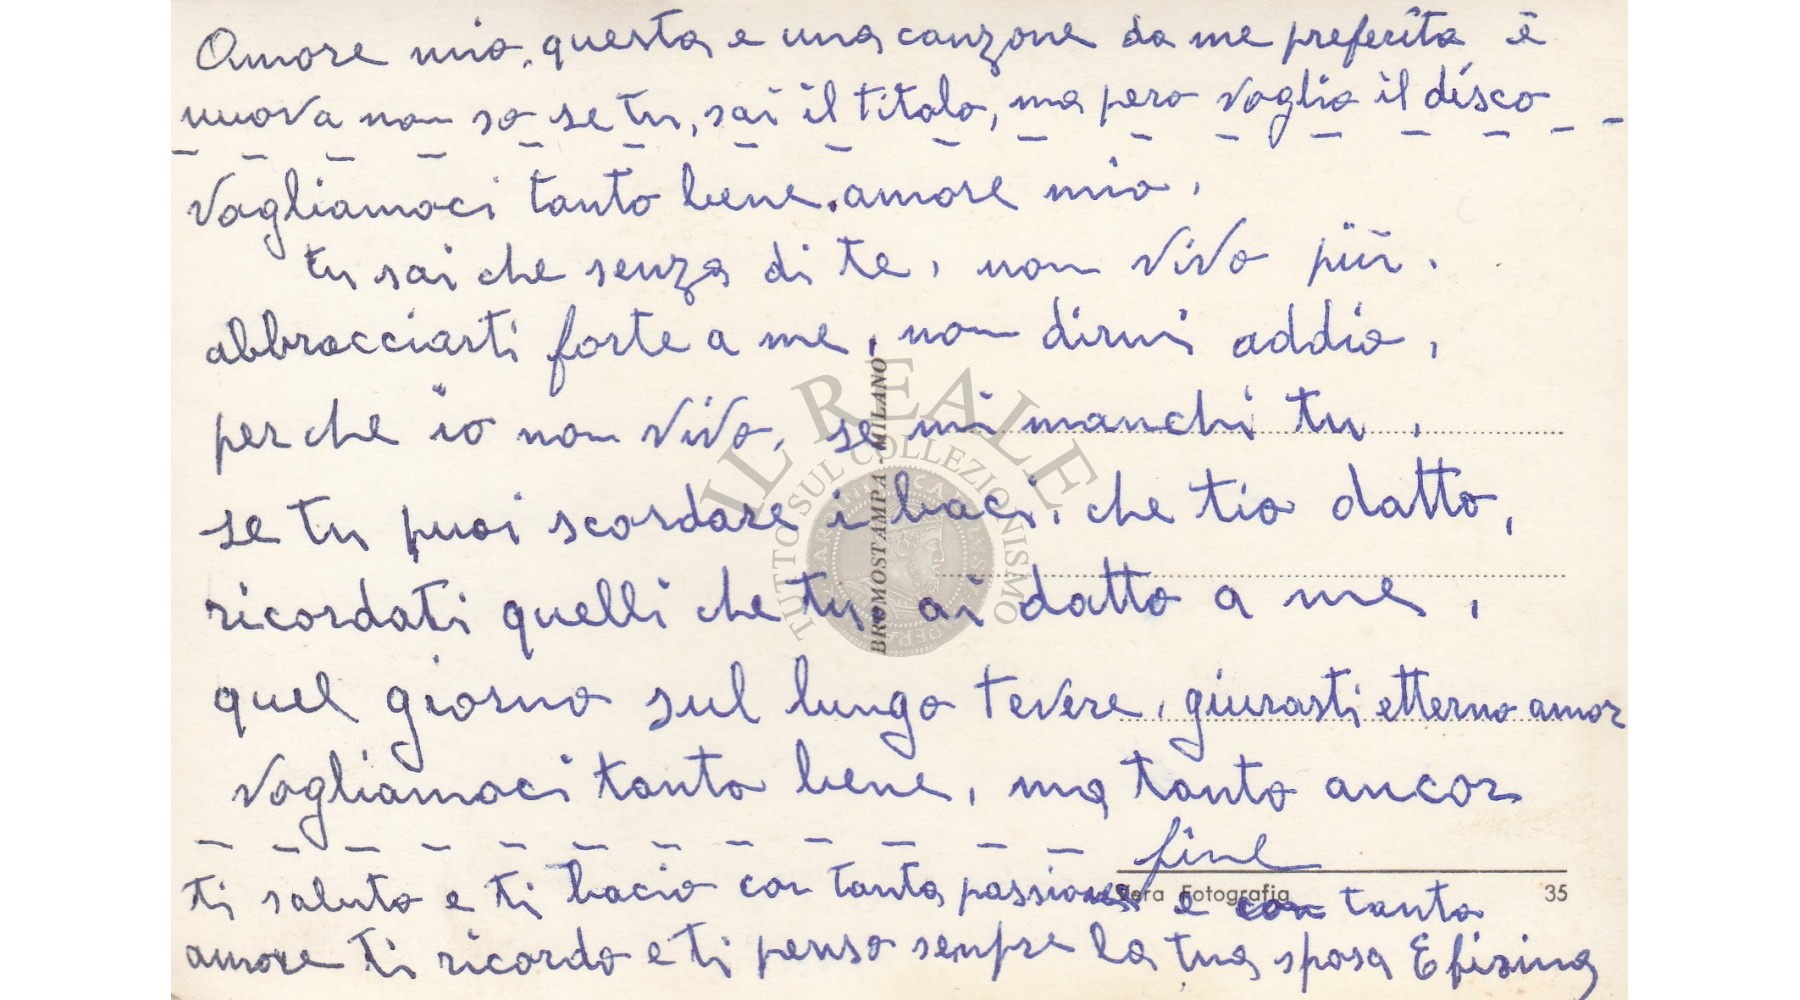 Amore mio, questa e una canzone da me preferita è
nuova non so se tu, sai il titolo, ma pero voglio il disco
Vogliamoci tanto bene. amore mio,
tu sai che senza di te, non vivo più.
abbracciarti forte a me, non dirmi addio,
perche io non vivo, se mi manchi tu,
se tu puoi scordare i baci, che tio datto,
ricordati quelli che tu ai datto a me,
quel giorno sul lungo tevere, giurasti etterno amor
Vogliamoci tanto bene, ma tanto ancor
fine
ti saluto e ti bacio con tanta passione e con tanto
amore ti ricordo e ti penso senpre la tua sposa Efisina
BROMOSTAMPA - MILANO
Vera Fotografia 35
IL REALE
TUTTO SUL COLLEZIONISMO